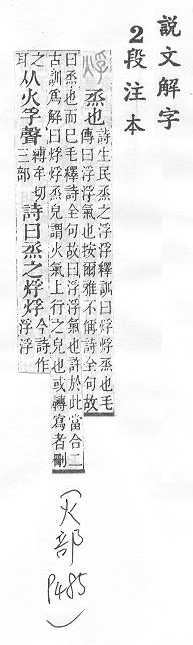 說文解字
2段注本
烰 烝也
詩生民烝之浮浮釋訓曰烰烰烝也毛
傳曰浮浮氣也按爾雅不偁詩全句故
曰烝也而已毛釋詩全句故曰浮浮氣也許於此當合二
古訓爲解曰烰烰烝皃謂火氣上行之皃也或轉寫者刪
之
耳
从火孚聲
縛牟切
三部
詩曰烝之烰烰
今詩作
浮浮
(火部
P485)